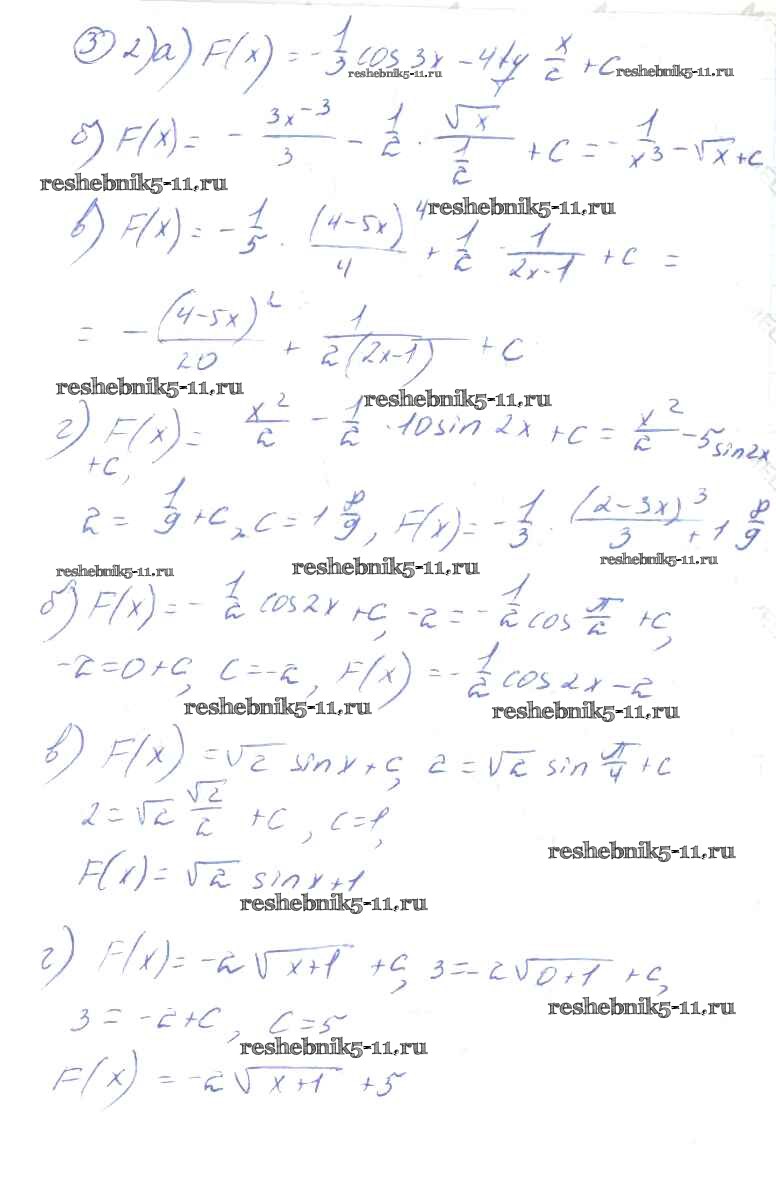 ③ 2) а) F(x) = -1/3 cos 3x - 4 tg x/2 + C
reshebnik5-11.ru reshebnik5-11.ru
б) F(x) = - 3x⁻³/3 - 1/2 · √x/(1/2) + C = - 1/x³ - √x + C
reshebnik5-11.ru reshebnik5-11.ru
в) F(x) = -1/5 · (4-5x)⁴/4 + 1/2 · 1/(2x-1) + C =
= - (4-5x)²/20 + 1/(2(2x-1)) + C
reshebnik5-11.ru reshebnik5-11.ru
г) F(x) = x²/2 - 1/2 · 10 sin 2x + C = x²/2 - 5 sin 2x
+C,
2 = 1/9 + C, C = 1 8/9, F(x) = -1/3 · (2-3x)³/3 + 1 8/9
reshebnik5-11.ru reshebnik5-11.ru reshebnik5-11.ru
б) F(x) = -1/2 cos 2x + C, -2 = -1/2 cos π/2 + C,
-2 = 0 + C, C = -2, F(x) = -1/2 cos 2x - 2
reshebnik5-11.ru reshebnik5-11.ru
в) F(x) = √2 sin x + C, 2 = √2 sin π/4 + C
2 = √2 √2/2 + C, C = 1,
reshebnik5-11.ru
F(x) = √2 sin x + 1
reshebnik5-11.ru
г) F(x) = -2√(x+1) + C, 3 = -2√(0+1) + C,
reshebnik5-11.ru
3 = -2 + C, C = 5
reshebnik5-11.ru
F(x) = -2√(x+1) + 5